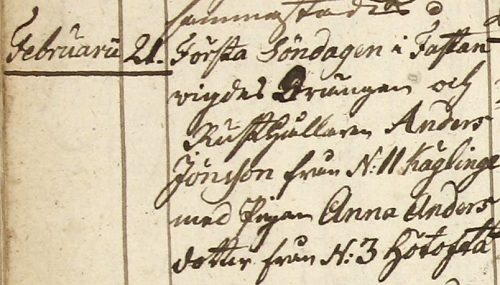 sammastädes
Februarii 21. Första Söndagen i Fastan
vigdes Drängen och
Rusthållaren Anders
Jönsson från N: 11 Käglinge
med Pigan Anna Anders
dotter från N: 3 Hötofta